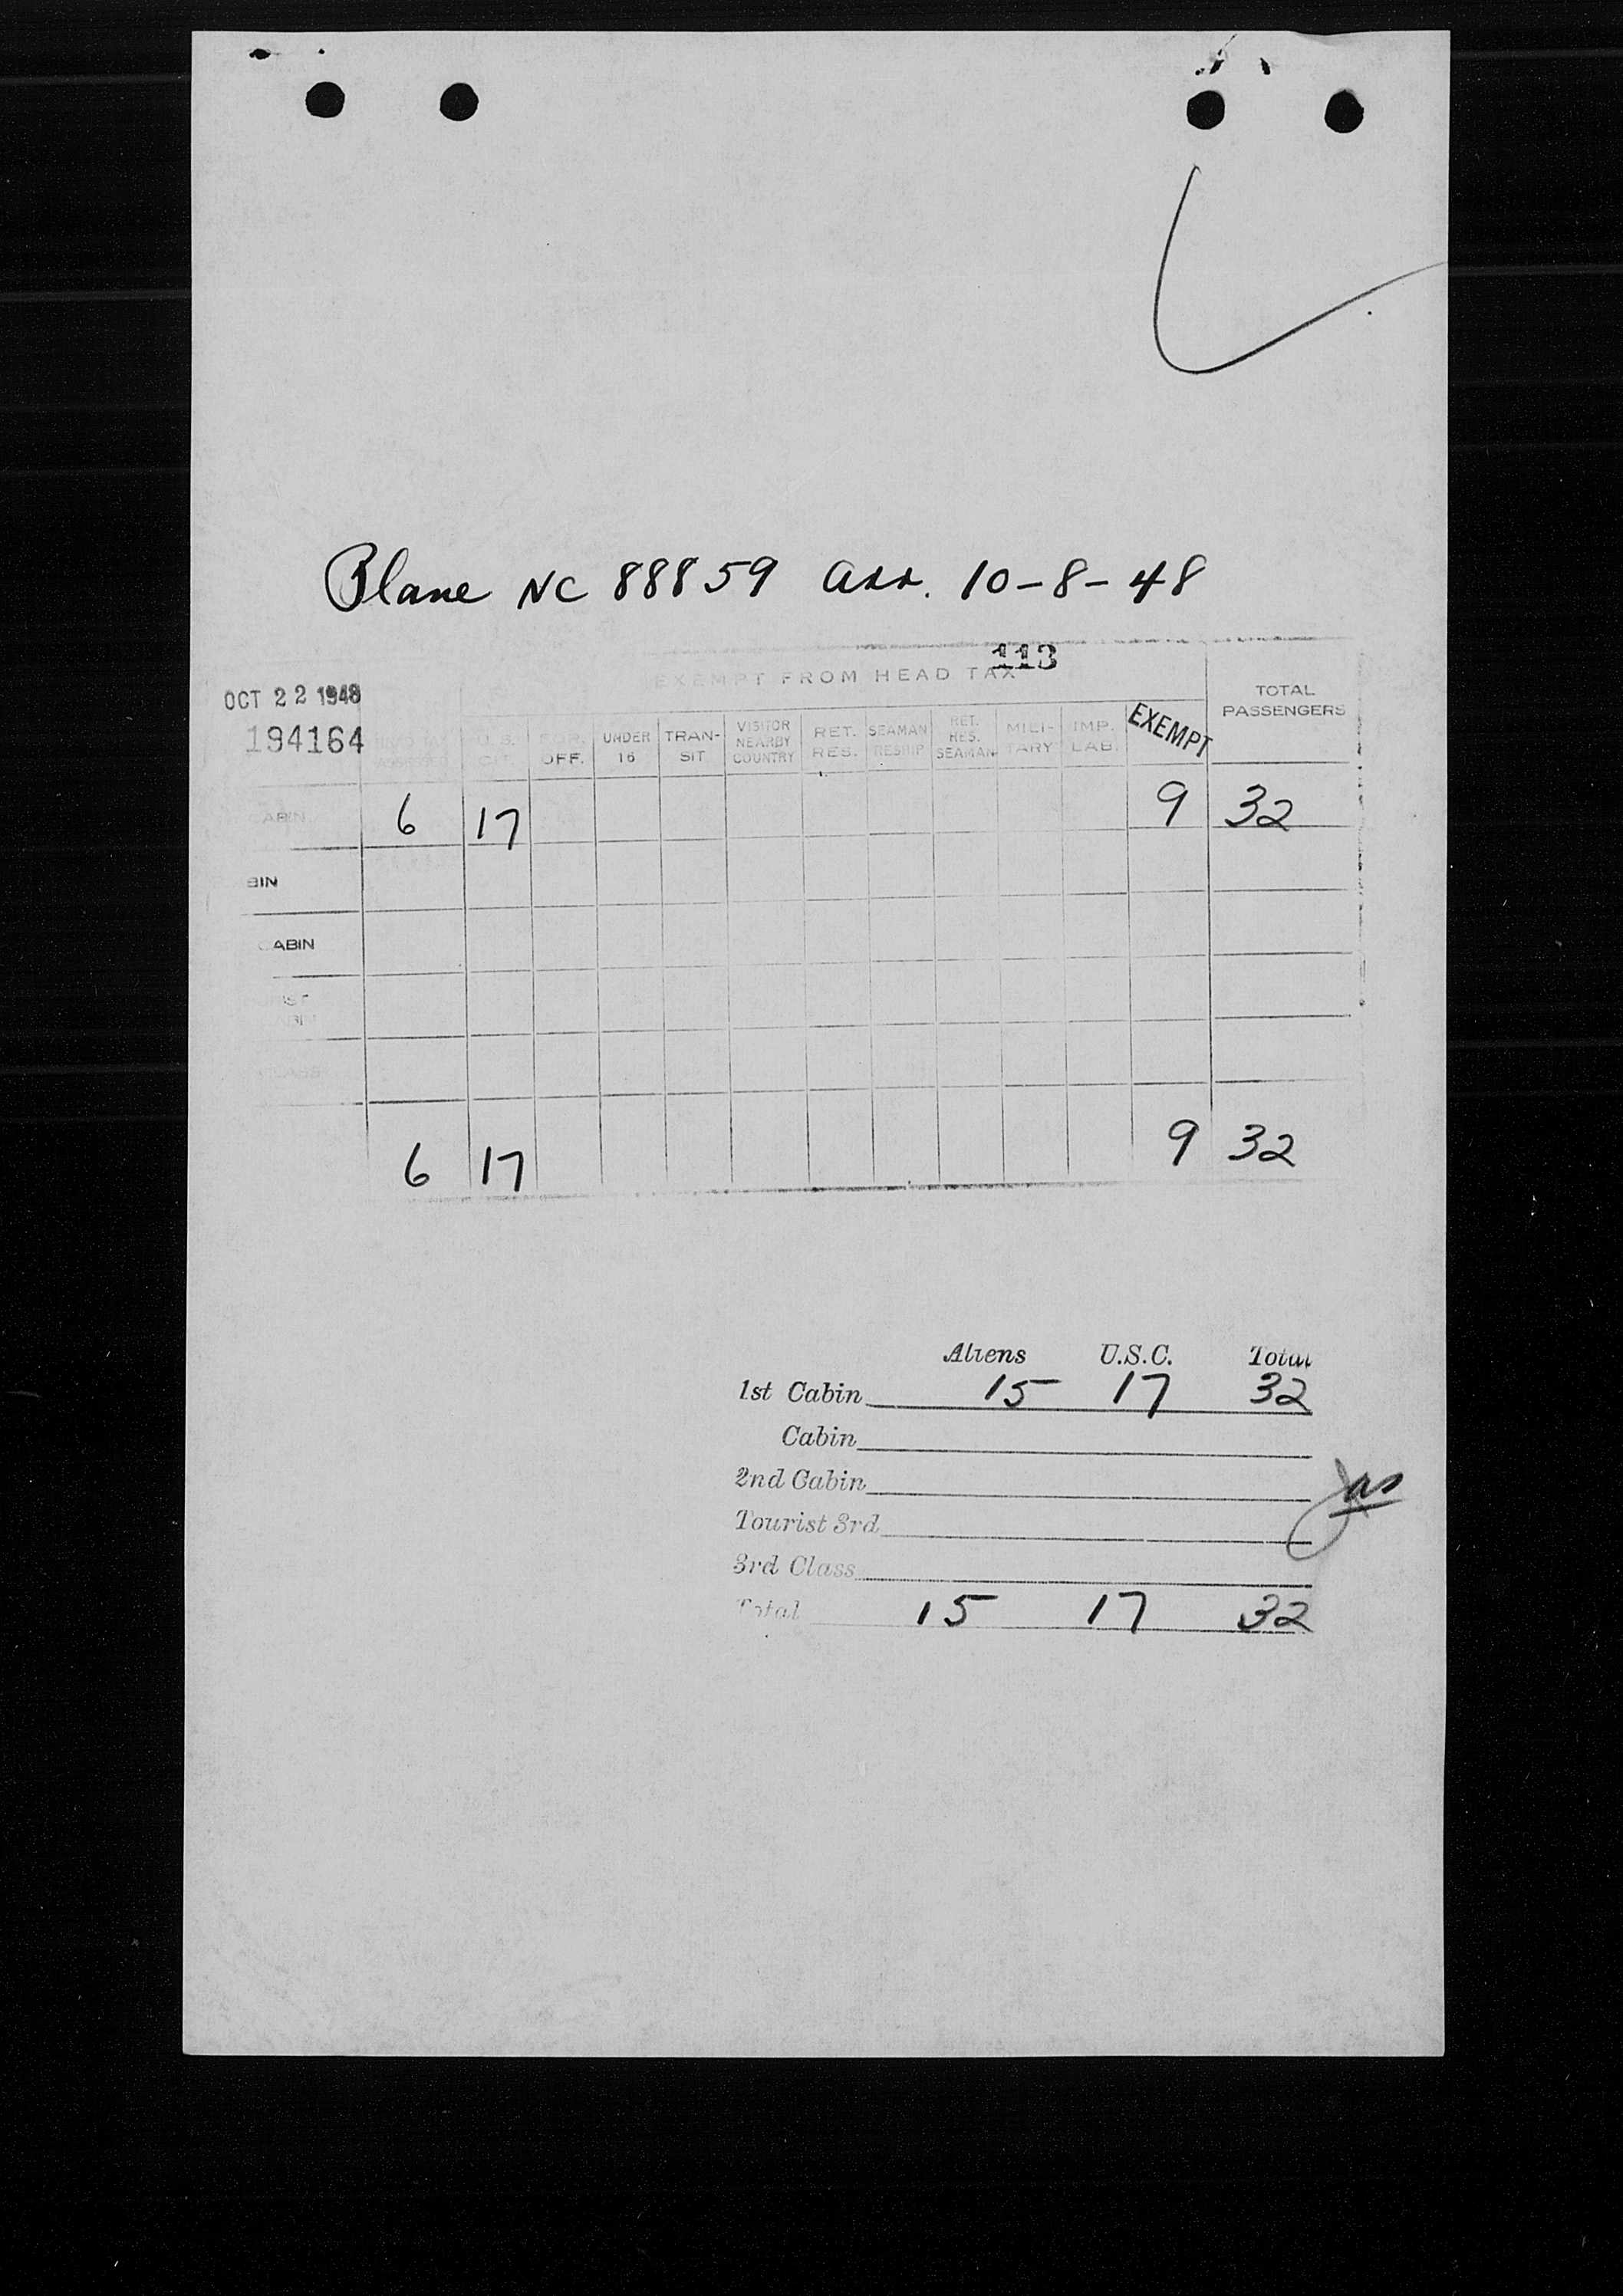 Plane NC 88859 arr. 10-8-48
113
EXEMPT FROM HEAD TAX
OCT 22 1948
194164
U.S. CIT.
OFF.
UNDER 16
TRAN- SIT
VISITOR NEARBY COUNTRY
RET. RES.
SEAMAN RESHIP
RET. RES. SEAMAN
MILI- TARY
IMP. LAB.
EXEMPT
TOTAL PASSENGERS
ABIN 6 17 9 32
BIN
CABIN
IST
ABIN
6 17 9 32
Aliens U.S.C. Total
1st Cabin 15 17 32
Cabin
2nd Cabin
Tourist 3rd
3rd Class
Total 15 17 32